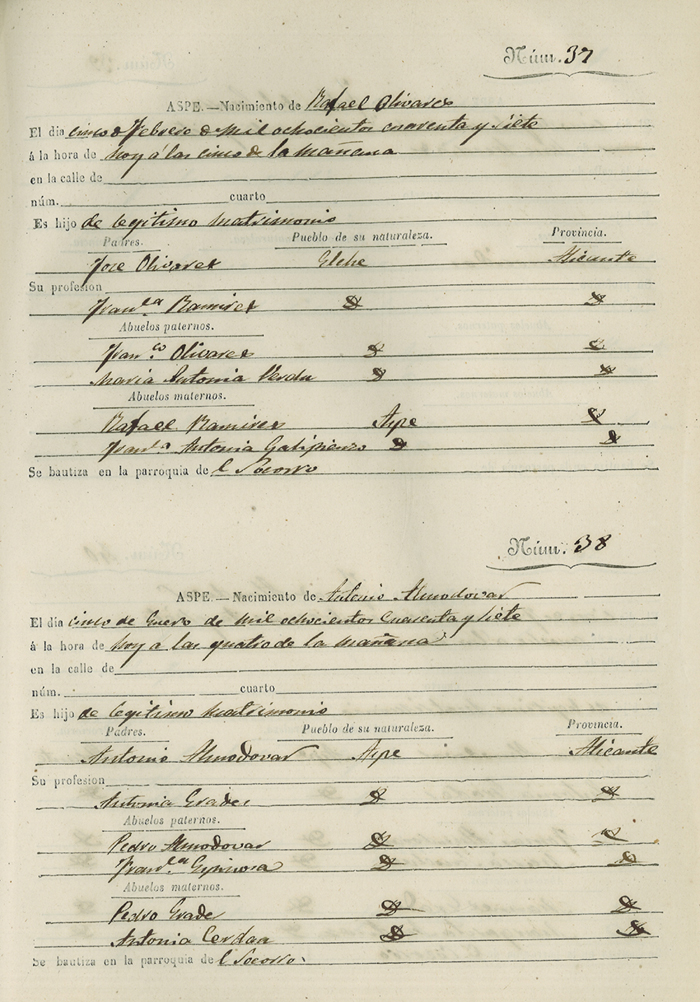 Núm. 37
ASPE.—Nacimiento de Rafael Olivares
El dia cinco d Febrero d Mil ochocientos cuarenta y siete
á la hora de hoy á las cinco de la mañana
en la calle de
núm. cuarto
Es hijo de legitimo matrimonio
Padres. Pueblo de su naturaleza. Provincia.
Jose Olivares Elche Alicante
Su profesion
Fran.ca Ramires D D
Abuelos paternos.
Fran.co Olivares D D
Maria Antonia Verdu D D
Abuelos maternos.
Rafael Ramires Aspe D
Fran.ca Antonia Galipienzo D D
Se bautiza en la parroquia de l Socorro
Núm. 38
ASPE.—Nacimiento de Antonio Almodovar
El dia cinco de Enero de Mil ochocientos cuarenta y siete
á la hora de hoy a las quatro de la mañana
en la calle de
núm. cuarto
Es hijo de legitimo matrimonio
Padres. Pueblo de su naturaleza. Provincia.
Antonio Almodovar Aspe Alicante
Su profesion
Antonia Grade D D
Abuelos paternos.
Pedro Almodovar D D
Fran.ca Espinosa D D
Abuelos maternos.
Pedro Grade D D
Antonia Cerdan D D
Se bautiza en la parroquia de l Socorro.